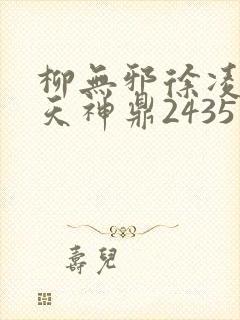 柳無邪徐凌
天神鼎2435
壽兒